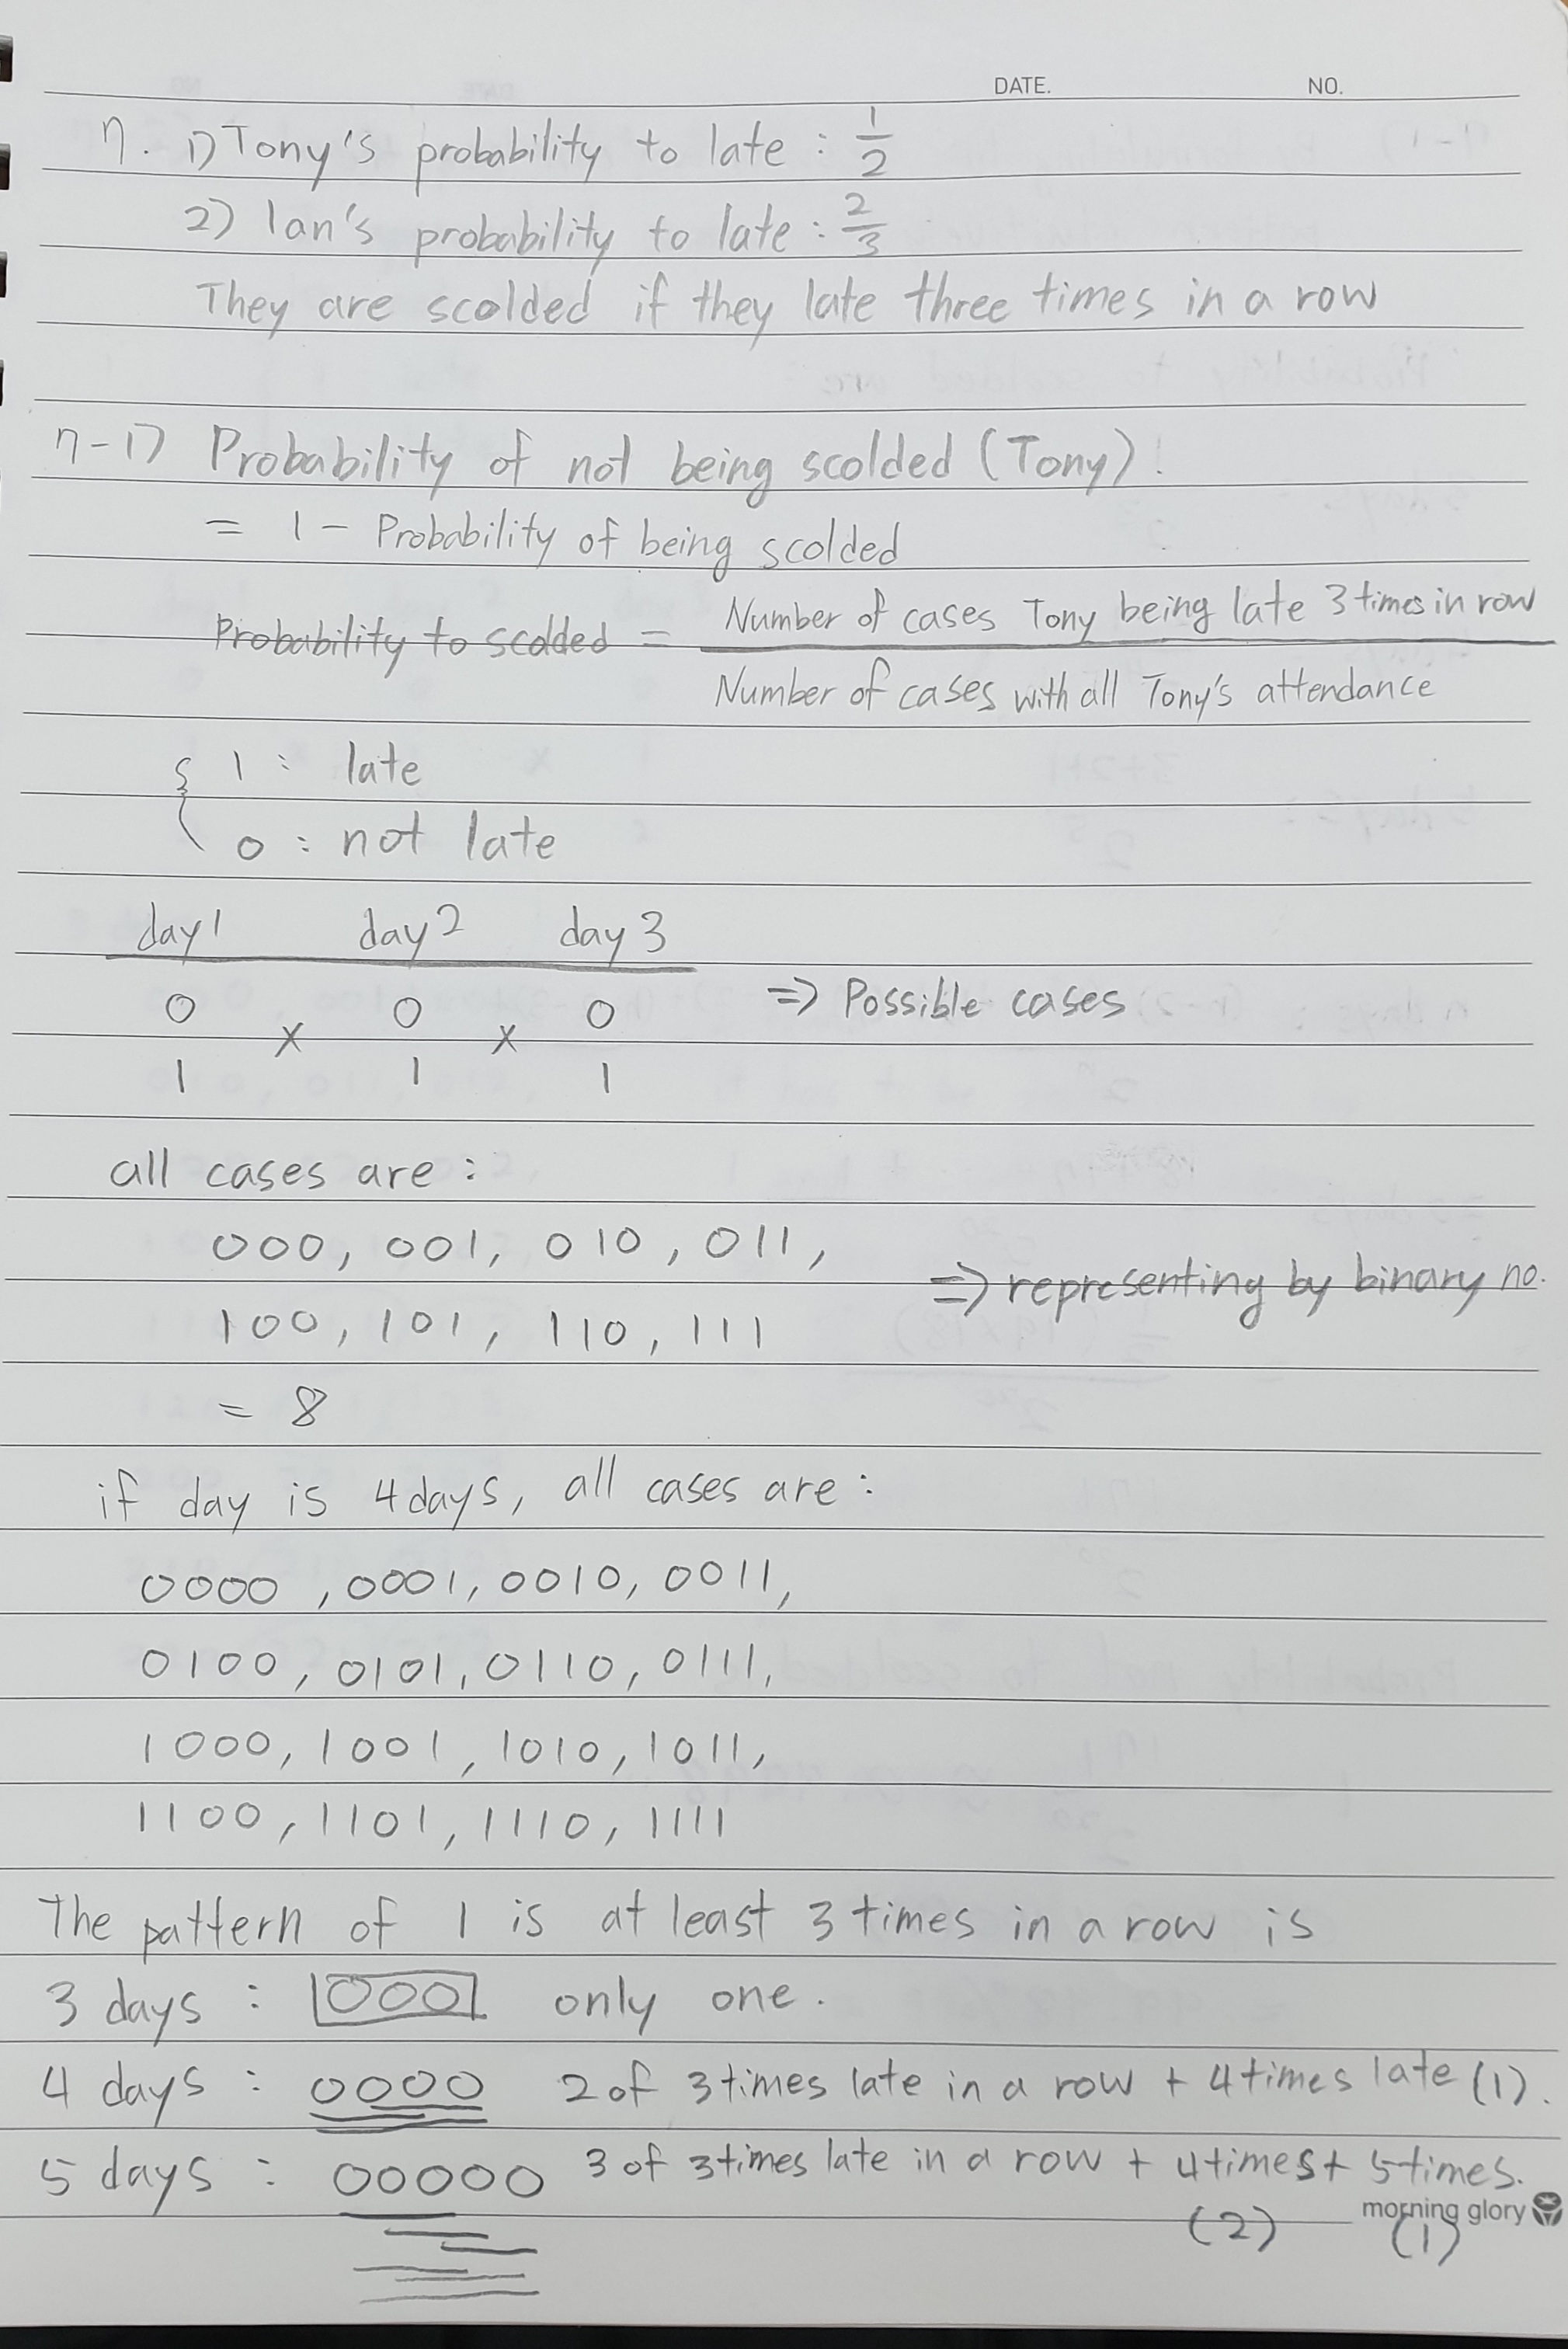 DATE. NO.
7. 1) Tony's probability to late : 1/2
2) Ian's probability to late : 2/3
They are scolded if they late three times in a row
7-1) Probability of not being scolded (Tony) :
= 1 - Probability of being scolded
Probability to scolded = Number of cases Tony being late 3 times in row / Number of cases with all Tony's attendance
{ 1 : late
0 : not late
day 1 day 2 day 3
0 x 0 x 0 => Possible cases
1 1 1
all cases are :
000, 001, 010, 011,
=> representing by binary no.
100, 101, 110, 111
= 8
if day is 4 days, all cases are :
0000, 0001, 0010, 0011,
0100, 0101, 0110, 0111,
1000, 1001, 1010, 1011,
1100, 1101, 1110, 1111
The pattern of 1 is at least 3 times in a row is
3 days : 000 only one.
4 days : 0000 2 of 3 times late in a row + 4 times late (1).
5 days : 00000 3 of 3 times late in a row + 4 times + 5 times.
morning glory
(2) (1)